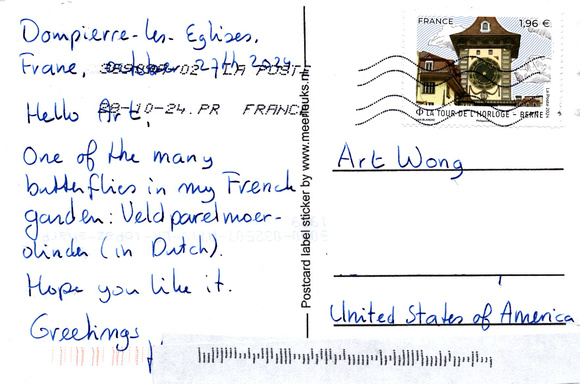 Dompierre-les-Eglises,
Frane, october 27th 2024
LA POSTE
28-10-24.PR FRANCE
Hello Art,
One of the many
butterflies in my French
garden: Veldparelmoer-
vlinder (in Dutch).
Hope you like it.
Greetings
Postcard label sticker by www.meerleuks.nl
FRANCE 1,96 €
La Poste 2024
LA TOUR DE L'HORLOGE - BERNE
Art Wong
United States of America